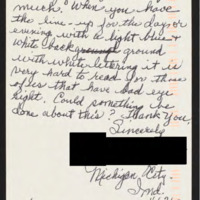 much. When you have
the line-up for the day or
evening with a light blue &
white background ground
with white lettering it is
very hard to read for those
of us that have bad eye
sight. Could something be
done about this? Thank You,
Sincerely
Michigan City,
Ind.